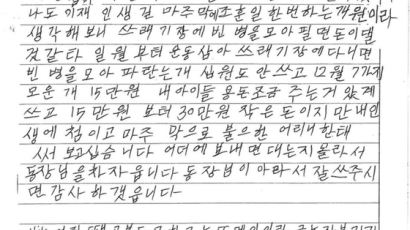 나도 이재 인생 길 마주막에 조훈일 한번하는개 원이라
생각해보니 쓰래기장에 빈 병을 모아 필면 돈이댈
것갇타 일월 부터 운동삼아 쓰래기장에 다니면
빈 병을 모아 파란는개 십원도 안쓰고 12월 7가지
모운개 15만원 내 아이들 용돈조금 주는거 았계
쓰고 15만원 보터 30만원 작은 돈이지만 내인
생에 첨이고 마주 막으로 불으한 어리내 한태
써 보고십습니다 어더에 보내면 대는지 몰라서
동장님을 화자 읍니다 동장님이 아라서 잘쓰주시
면 감사 하겟읍니다